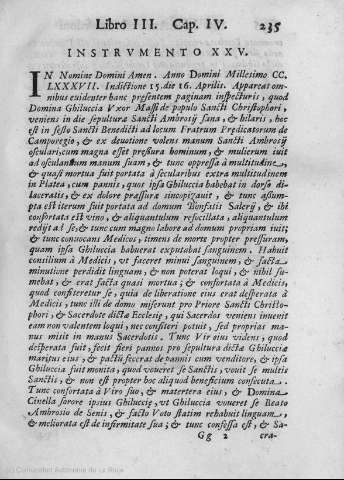 Libro III. Cap. IV. 235
INSTRVMENTO XXV.
IN Nomine Domini Amen. Anno Domini Millesimo CC.
LXXXVII. Indictione 15. die 16. Aprilis. Appareat om-
nibus euidenter hanc presentem paginam inspecturis, quod
Domina Ghiluccia Vxor Massi de populo Sancti Christofori,
veniens in die sepulturæ Sancti Ambrosij sana, & hilaris, hoc
est in festo Sancti Benedicti ad locum Fratrum Predicatorum de
Camporegio, & ex deuotione volens manum Sancti Ambrosij
osculari, cum magna esset pressura hominum, & mulierum iuit
ad osculandum manum suam, & tunc oppressa à multitudine,
& quasi mortua fuit portata à secularibus extra multitudinem
in Platea, cum pannis, quos ipsa Ghiluccia habebat in dorso di-
laceratis, & ex dolore pressuræ & tunc assum-
pta est iterum fuit portata ad domum Bonfilij Salerij, & ibi
confortata est vino, & aliquantulum refocillata, aliquantulum
redijt ad se, & tunc cum magno labore ad domum propriam iuit;
& tunc conuocans Medicos, timens de morte propter pressuram,
quam ipsa Ghiluccia habuerat exputabat sanguinem. Habuit
consilium à Medicis, vt faceret minui sanguinem, & facta
minutione perdidit linguam, & non poterat loqui, & nihil su-
mebat, & erat facta quasi mortua; & confortata à Medicis,
quod confiteretur se, quia de liberatione eius erat desperata à
Medicis, tunc illi de domo miserunt pro Priore Sancti Christo-
phori, & Sacerdote dictæ Ecclesiæ, qui Sacerdos veniens inuenit
eam non valentem loqui, nec confiteri potuit, sed proprias ma-
nus misit in manus Sacerdotis. Tunc Vir eius videns, quod
desperata fuit, fecit fieri pannos pro sepultura dictæ Ghilucciæ
maritus eius, & pactum fecerat de panni cum venditore, & ipsa
Ghiluccia fuit monita, quod voueret se Sanctis, vouit se multis
Sanctis, & non est propter hoc aliquod beneficium consecuta.
Tunc confortata à Viro suo, & matertera eius, & Domina
Cinella sorore ipsius Ghilucciæ, vt Ghiluccia voueret se Beato
Ambrosio de Senis, & facto Voto statim rehabuit linguam,
& meliorata est de infirmitate sua; & tunc confessa est, & Sa-
Gg 2 cra-
(C) Comunidad Autónoma de La Rioja